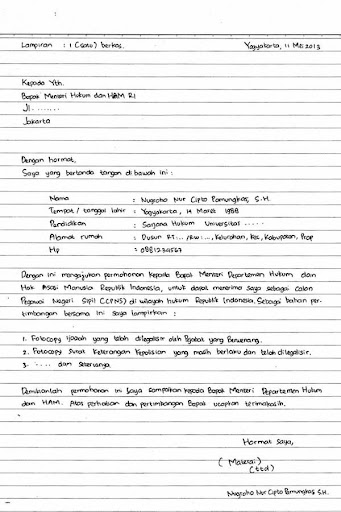 Lampiran : 1 (satu) berkas. Yogyakarta, 11 Mei 2013
Kepada Yth.
Bapak Menteri Hukum dan HAM RI
Jl. ........
Jakarta
Dengan hormat,
Saya yang bertanda tangan di bawah ini :
Nama : Nugroho Nur Cipto Pamungkas, S.H.
Tempat / tanggal lahir : Yogyakarta, 14 Maret 1988
Pendidikan : Sarjana Hukum Universitas .....
Alamat rumah : Dusun RT... /RW..., Kelurahan, Kec, Kabupaten, Prop
Hp : 0881234567
Dengan ini mengajukan permohonan kepada Bapak Menteri Departemen Hukum dan
Hak Asasi Manusia Republik Indonesia, untuk dapat menerima saya sebagai Calon
Pegawai Negeri Sipil (CPNS) di wilayah hukum Republik Indonesia. Sebagai bahan per-
timbangan bersama ini saya lampirkan :
1. Fotocopy Ijazah yang telah dilegalisir oleh Pejabat yang Berwenang.
2. Fotocopy Surat Keterangan Kepolisian yang masih berlaku dan telah dilegalisir.
3. ..... dan seterusnya.
Demikianlah permohonan ini saya sampaikan kepada Bapak Menteri Departemen Hukum
dan HAM. Atas perhatian dan pertimbangan Bapak ucapkan terimakasih.
Hormat Saya,
( Materai)
(ttd)
Nugroho Nur Cipto Pamungkas S.H.